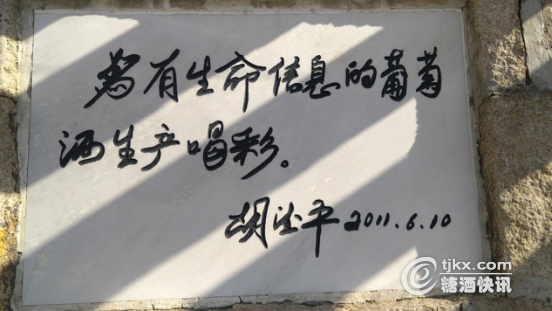 為有生命信息的葡萄
酒生产唱彩。
胡德平 2011.6.10
tjkx.com
糖酒快讯